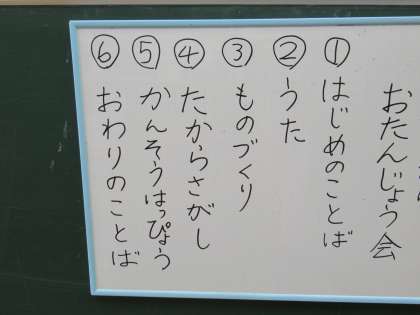 おたんじょう会
①はじめのことば
②うた
③ものづくり
④たからさがし
⑤かんそうはっぴょう
⑥おわりのことば